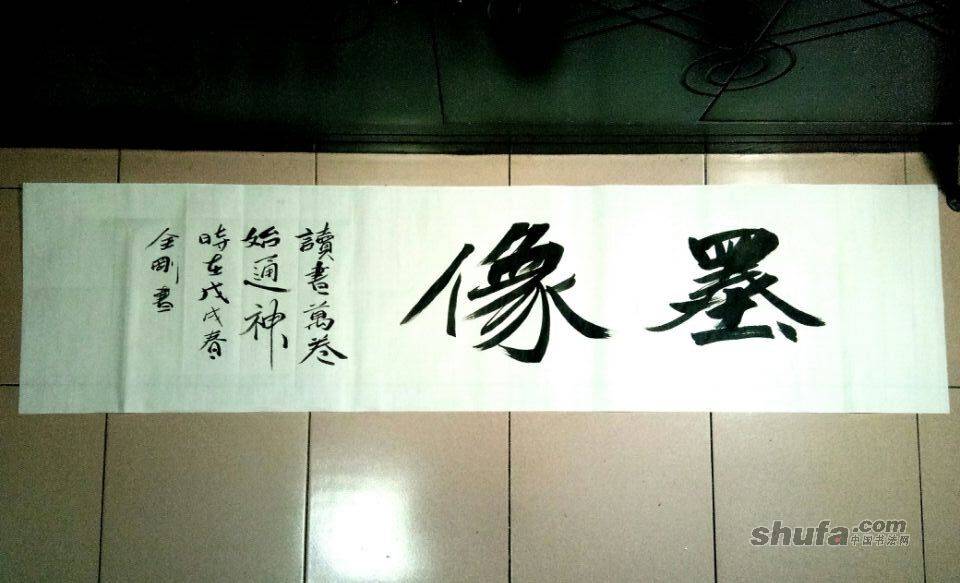 墨像
讀書萬卷
始通神
時在戊戌春
金剛書
shufa.com
中国书法网